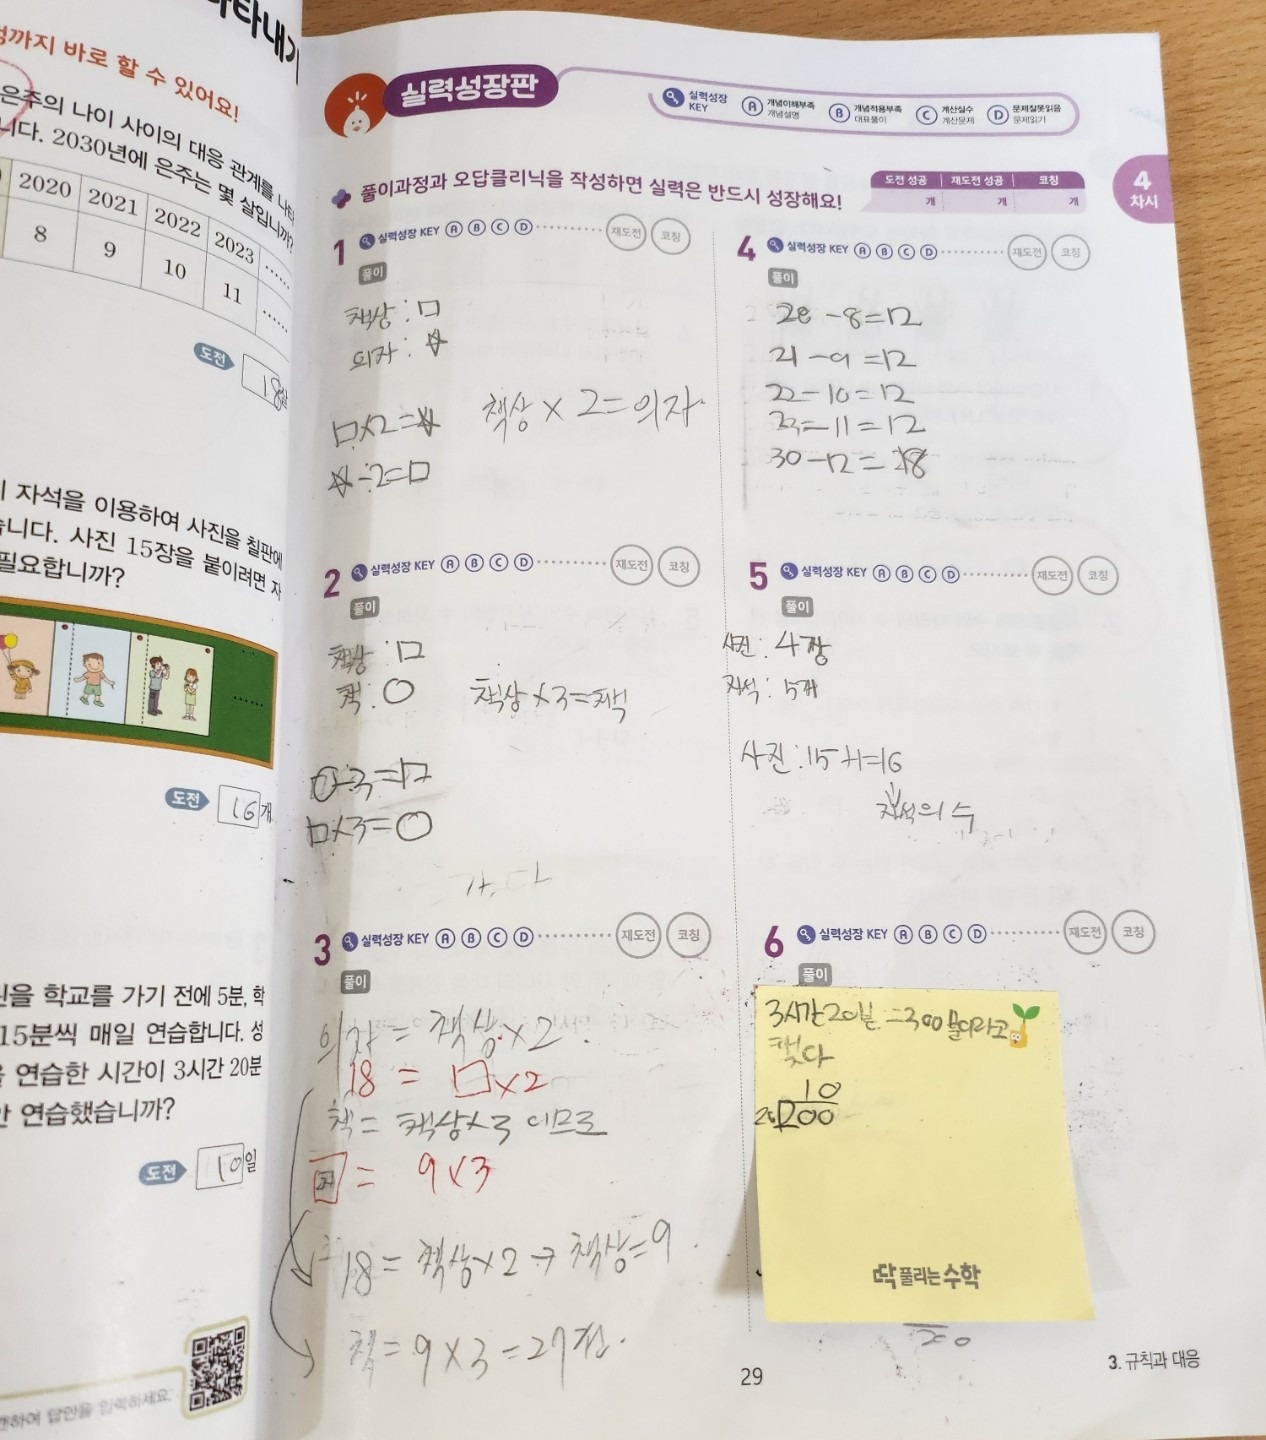 나타내기
까지 바로 할 수 있어요!
은주의 나이 사이의 대응 관계를 나타
니다. 2030년에 은주는 몇 살입니까?
2020 2021 2022 2023 ……
8 9 10 11 ……
도전 18살
자석을 이용하여 사진을 칠판에
습니다. 사진 15장을 붙이려면 자
필요합니까?
도전 16개
을 학교를 가기 전에 5분, 학
15분씩 매일 연습합니다. 성
을 연습한 시간이 3시간 20분
안 연습했습니까?
도전 10일
캔하여 답안을 입력하세요.
실력성장판
실력성장 KEY
A 개념이해부족 개념설명
B 개념적용부족 대표풀이
C 계산실수 계산문제
D 문제잘못읽음 문제읽기
풀이과정과 오답클리닉을 작성하면 실력은 반드시 성장해요!
도전 성공 재도전 성공 코칭
개 개 개
4
차시
1 실력성장 KEY A B C D 재도전 코칭
풀이
책상 : □
의자 : ☆
□×2=☆ 책상 × 2 = 의자
☆÷2=□
2 실력성장 KEY A B C D 재도전 코칭
풀이
책상 : □
책 : ○ 책상 ×3=책
○÷3=□
□×3=○
3 실력성장 KEY A B C D 재도전 코칭
풀이
의자 = 책상×2
18 = □×2
책 = 책상×3 이므로
= 9×3
18 = 책상×2 → 책상=9
책 = 9×3=27권.
4 실력성장 KEY A B C D 재도전 코칭
풀이
20-8=12
21-9=12
22-10=12
23-11=12
30-12=18
5 실력성장 KEY A B C D 재도전 코칭
풀이
사진 : 4장
자석 : 5개
사진 : 15+1=16
자석의 수
6 실력성장 KEY A B C D 재도전 코칭
풀이
3시간 20분 = 300분이라고
했다
10
20 200
딱 풀리는 수학
29
3. 규칙과 대응